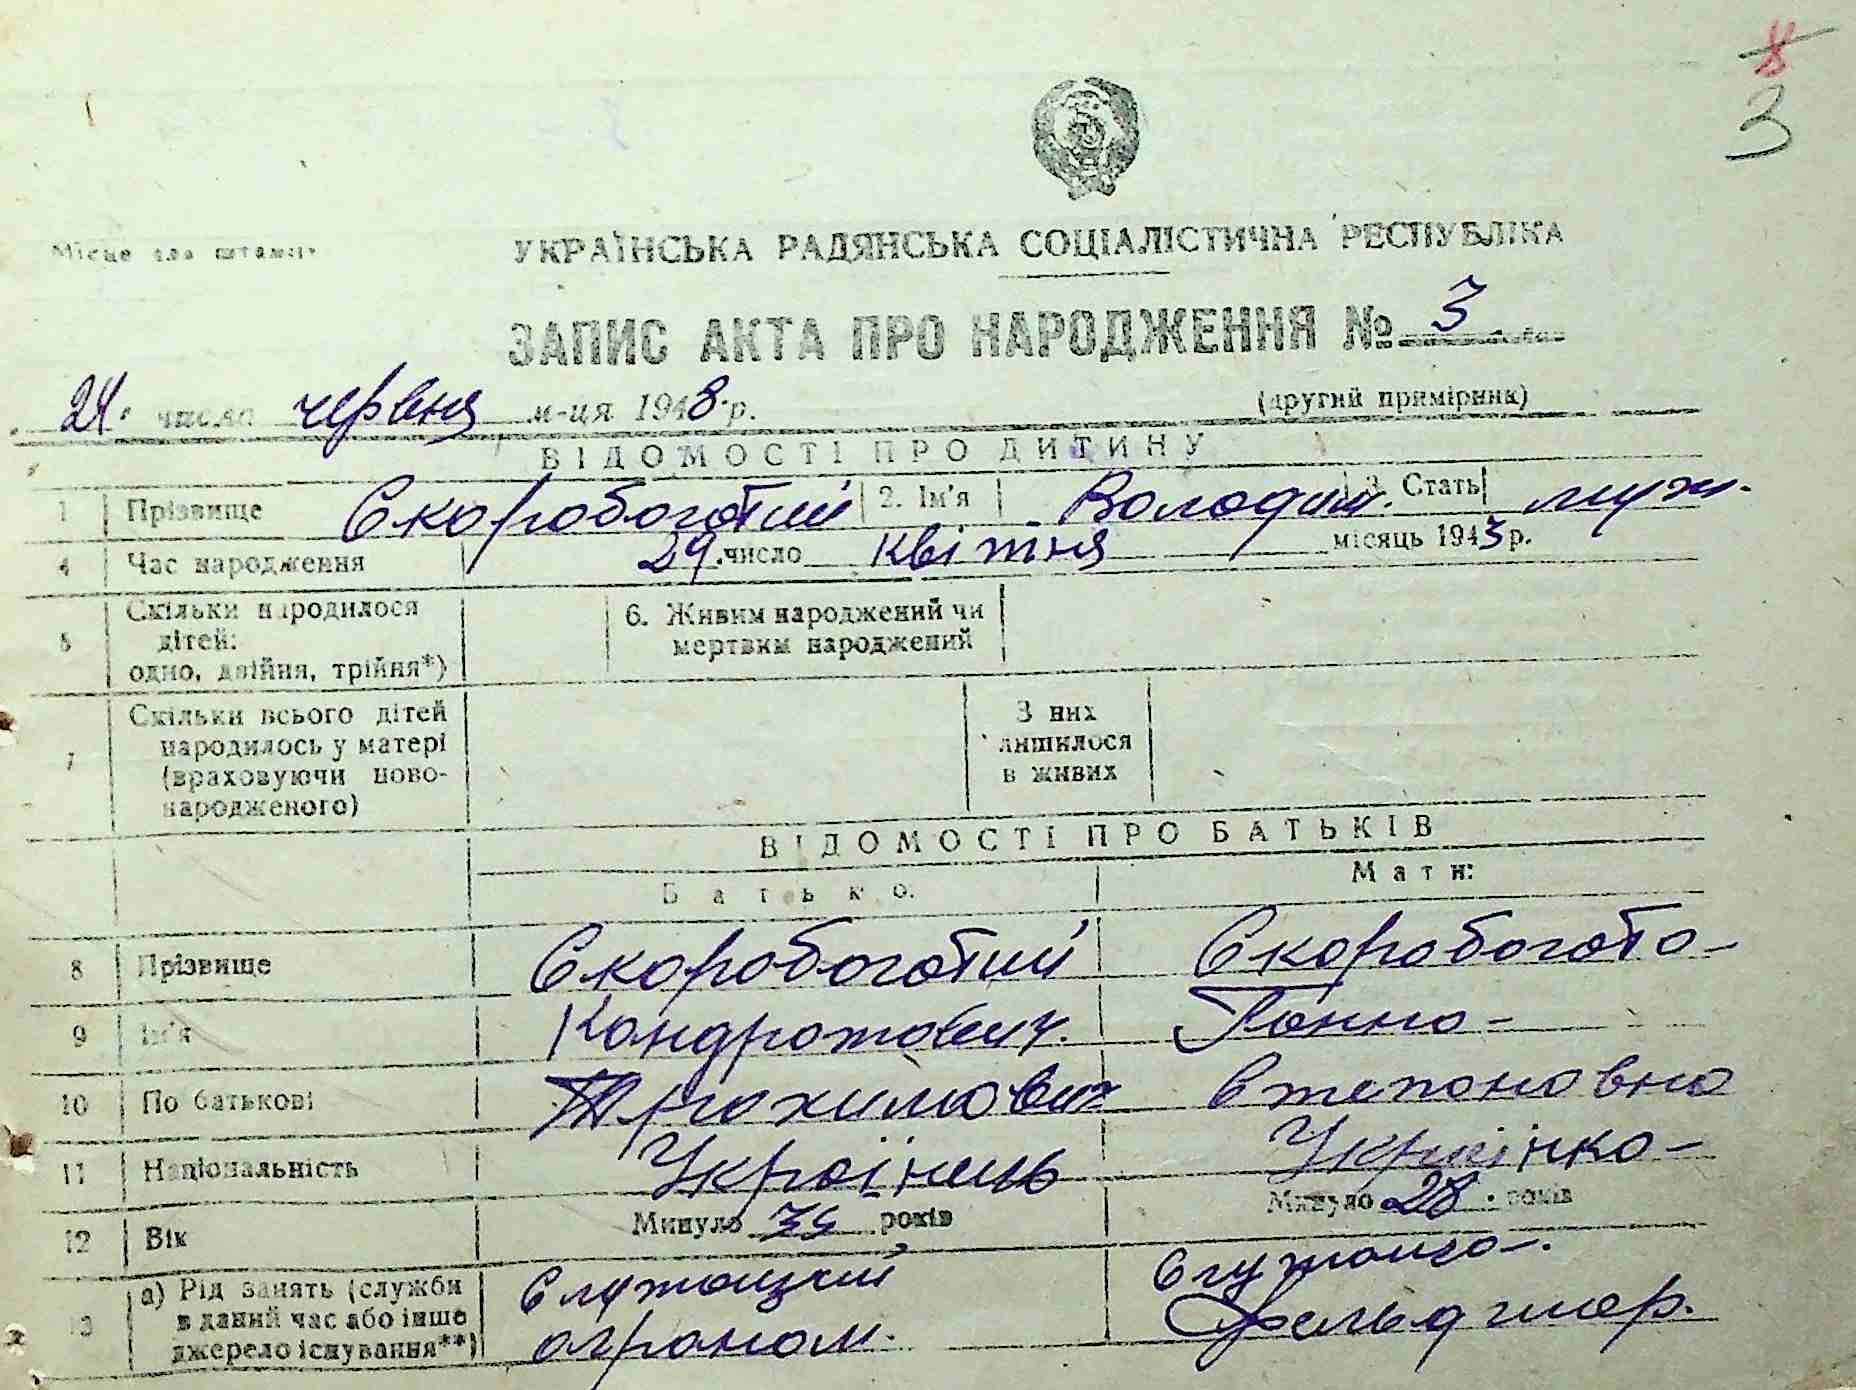 3
Місце для штампу
УКРАЇНСЬКА РАДЯНСЬКА СОЦІАЛІСТИЧНА РЕСПУБЛІКА
ЗАПИС АКТА ПРО НАРОДЖЕННЯ № 3
24. число червня м-ця 1948 р. (другий примірник)
ВІДОМОСТІ ПРО ДИТИНУ
1 Прізвище Скоробогатий 2. Ім'я Володим. 3. Стать муж.
4 Час народження 29. число квітня місяць 1943 р.
5 Скільки народилося дітей: одно, двійня, трійня*) 6. Живим народжений чи мертвим народжений
7 Скільки всього дітей народилось у матері (враховуючи ново-народженого) З них лишилося в живих
ВІДОМОСТІ ПРО БАТЬКІВ
Батько: Мати:
8 Прізвище Скоробогатий Скоробогата
9 Ім'я Кондратович. Ганна
10 По батькові Степановна
11 Національність Украінець Українка
12 Вік Минуло років Минуло 28. років
13 а) Рід занять (служби в даний час або інше джерело існування**) Служащий агроном. Служаща. Фельдшер.